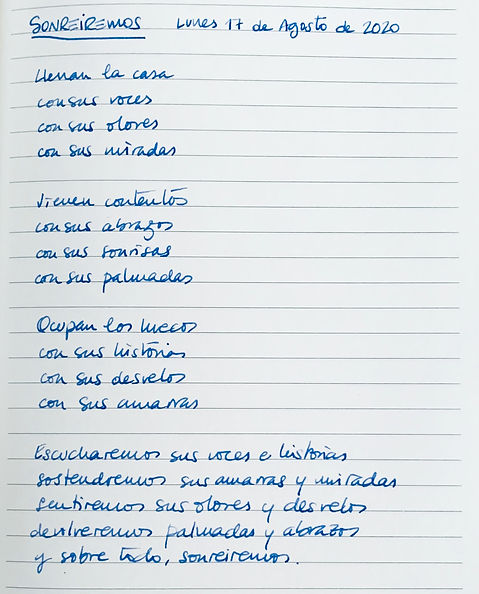 SONREIREMOS Lunes 17 de Agosto de 2020
Llenan la casa
con sus voces
con sus olores
con sus miradas
Vienen contentos
con sus abrazos
con sus sonrisas
con sus palmadas
Ocupan los huecos
con sus historias
con sus desvelos
con sus amarras
Escucharemos sus voces e historias
sostendremos sus amarras y miradas
sentiremos sus olores y desvelos
devolveremos palmadas y abrazos
y sobre todo, sonreiremos.